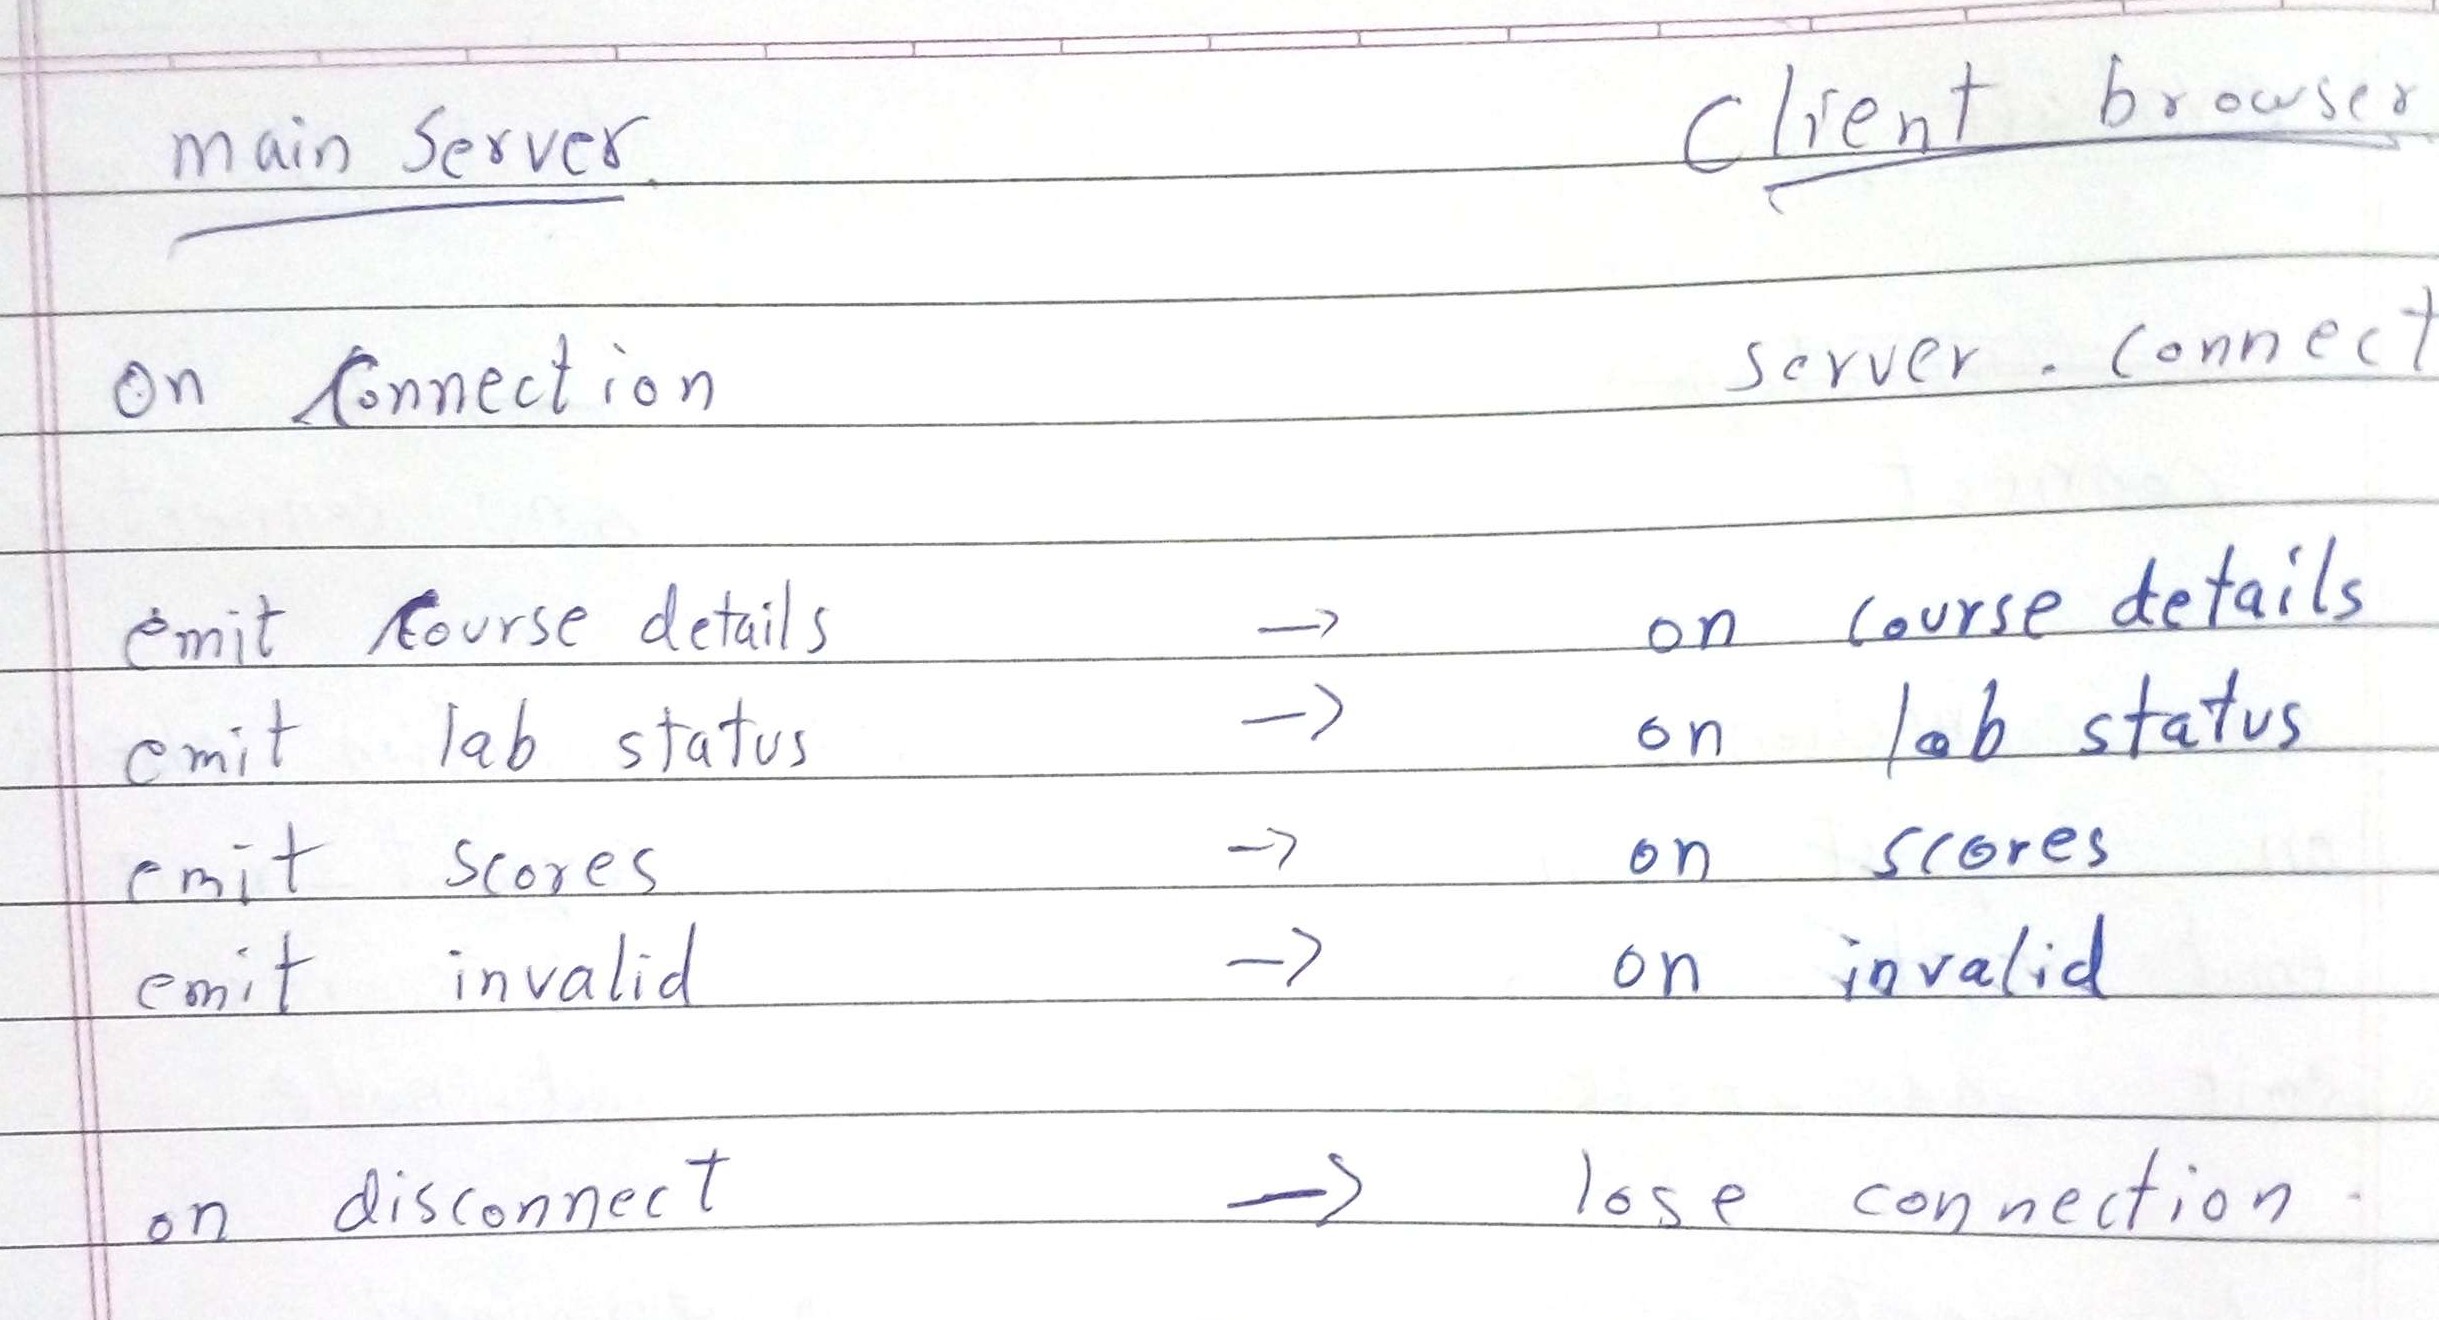 main Server Client browser
on Connection server . connect
emit Course details -> on course details
emit lab status -> on lab status
emit scores -> on scores
emit invalid -> on invalid
on disconnect -> lose connection.